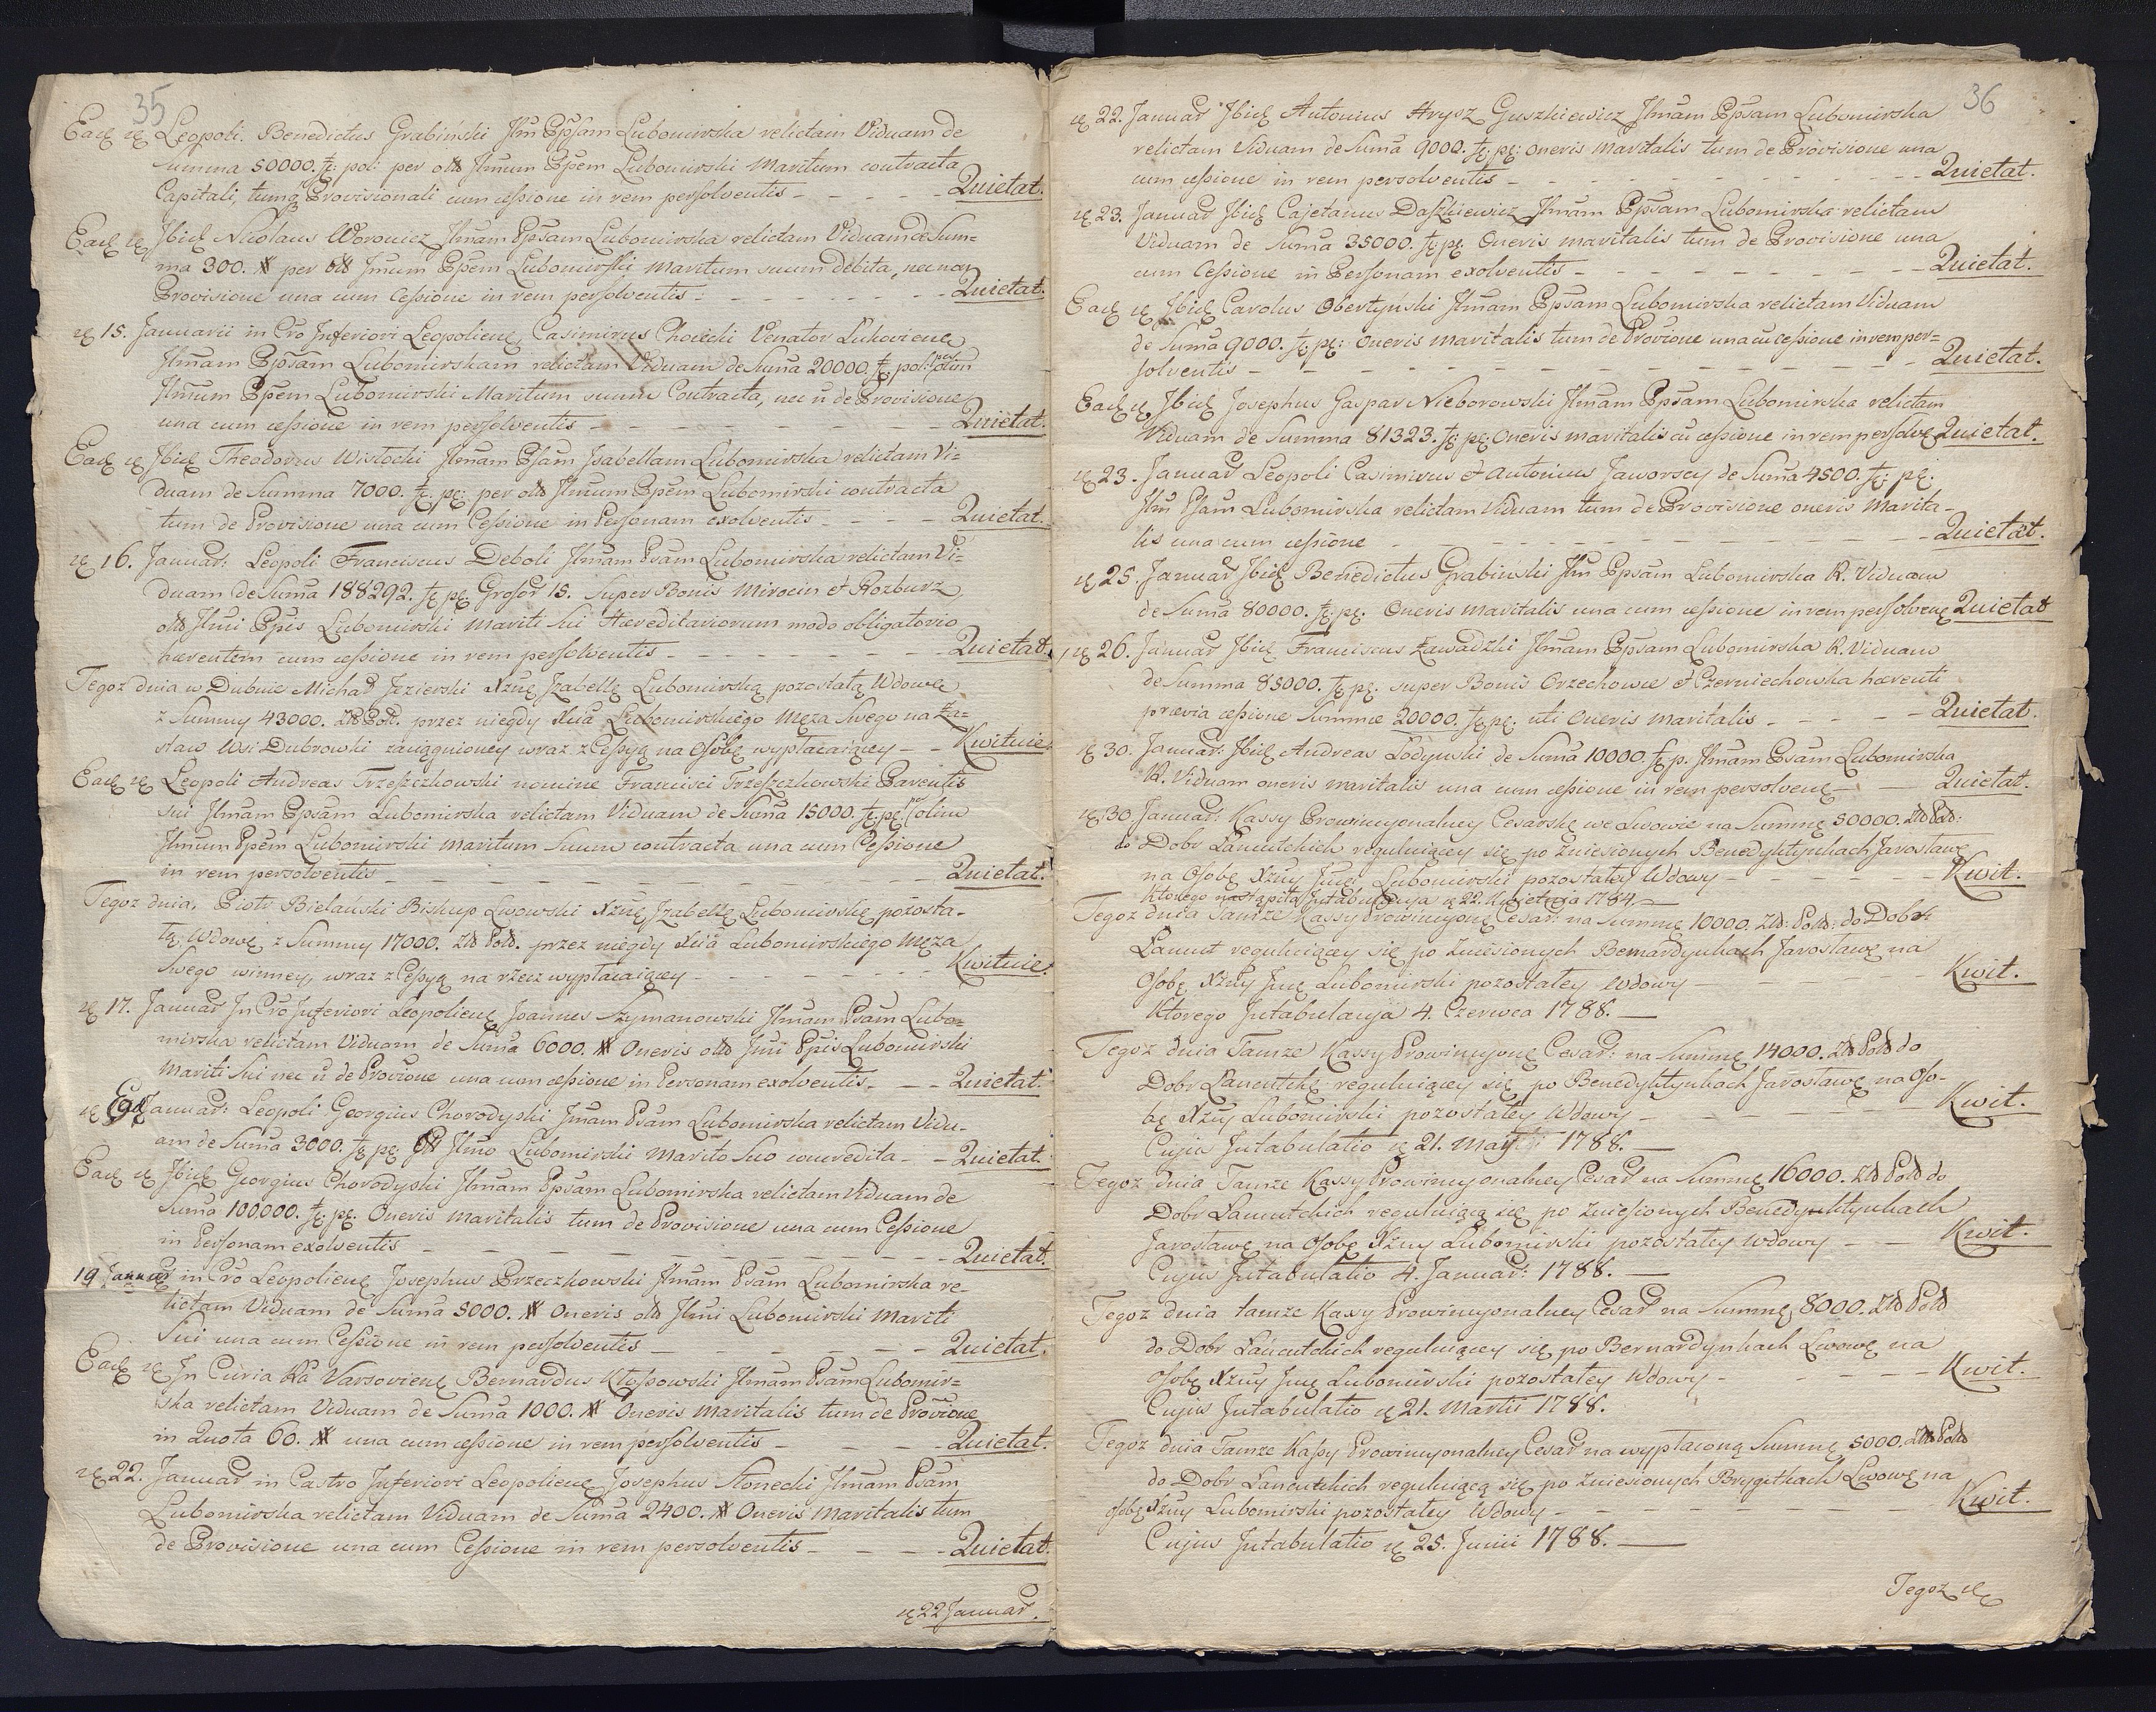 35
Eadē ıę Leopoli. Benedictus Grabiński Jlln̄ Ppsam Lubomirska relictam Viduam de
summa 50000. fę: pol: per olld Jllmum Ppem Lubomirski Maritum contracta
Capitali, tumq̃ Provisionali cum cessione in rem persolventis - - - Quietat.
Eadē ıę Jbidē Nicolaus Woronicz Jllmam Ppsam Lubomirska relictam Viduam de Sum=
ma 300. # per olld Jmum Ppem Lubomirski Maritum suum debita, nec non
Provisione una cum Cessione in rem persolventis - - - Quietat.
ıę 15. Januarii in Cro Inferiori Leopolienę, Casimirus Chołecki Venator Lukoviens
Jllmam Ppsam Lubomirskam relictam Viduam de Suma 20000. fę pol: per olim
Jllmum Ppem Lubomirski Maritum suum Contracta, nec ñ de Provisione
una cum cessione in rem persolventis - - - Quietat.
Eadē ıę Jbidē Theodorus Wisłocki Jllmam Psam Jsabellam Lubomirska relictam Vi=
duam de Summa 7000. fę. pę: per olld Jllmum Ppem Lubomirski contracta
tum de Provisione una cum Cessione in Personam exolventis - - - Quietat.
ıę 16. Januar: Leopoli Franciscus Deboli Jllmam Psam Lubomirska relictam Vi=
duam de Suma 188292. fę pę. Grosor 15. Super Bonis Mirocin et Rozburz
olld Jllmi Ppis Lubomirski Mariti Sui Hæreditariorum modo obligatorio
hærentem cum cessione in rem persolventis - - - Quietat.
Tegoz dnia w Dubnie Michał Jezierski Xznę Jzabellę Lubomirską pozostałą Wdowę
z Summy 43000. Złd Pold. przez niegdy Xcia Lubomirskiego Męza Swego na Za=
staw Wsi Dubrowki zaciągnioney wraz z Cessyą na Osobę wypłacaiącey - - Kwituie.
Eadē ıę Leopoli Andreas Trzeszczkowski nomine Francisci Trzeszczkowski Parentis
sui Jllmam Ppsam Lubomirska relictam Viduam de Suma 15000. fę. pę. per olim
Jllmum Ppem Lubomirski Maritum Suum contracta una cum Cessione
in rem persolventis - - - Quietat.
Tegoz dnia, Piotr Bielański Biskup Lwowski Xznę Jzabellę Lubomirskę pozosta-
łą Wdowę z Summy 17000. Złd Pold. przez niegdy Xcia Lubomirskiego Męza
Swego winney, wraz z Cessyą na rzecz wypłacaiącey - - - Kwituie.
ıę 17. Januar Jn Cro Jnferiori Leopolienę Joannes Szymanowski Jllmam Psam Lubo=
mirska relictam Viduam de Suma 6000. # Oneris olld Jmi Ppis Lubomirski
Mariti Sui nec ñ de Provione una cum cessione in Personam exolventis - - Quietat.
ıę 19 Januar: Leopoli Georgius Chorodyski Jmam Psam Lubomirska relictam Vidu-
am de Suma 3000. fę pę. olld Jllmo Lubomirski Marito Suo concredita - - Quietat.
Eadē ıę Jbidē Georgius Chorodyski Jllmam Ppsam Lubomirska relictam Viduam de
Suma 100,000. fę. pę. Oneris Maritalis tum de Provisione una cum Cessione
in Personam exolventis - - - Quietat.
19 Januar in Cro Leopolienę Josephus Brzeczkowski Jllmam Psam Lubomirska re-
lictam Viduam de Suma 5000. # Oneris olld Jllmi Lubomirski Mariti
Sui una cum Cessione in rem persolventis - - - Quietat.
Eadē ıę Jn Curia Ra Varsovienę Bernardus Kłossowski Jllmam Psam Lubomir=
ska relictam Viduam de Suma 1000. # Oneris Maritalis tum de Provione
in Quota 60. # una cum cessione in rem persolventis - - - Quietat.
ıę 22. Januar in Castro Jnferiori Leopolienę Josephus Słonecki Jllmam Psam
Lubomirska relictam Viduam de Suma 2400. # Oneris Maritalis tum
de Provisione una cum Cessione in rem persolventis - - - Quietat.
ıę 22 Januar.
36
ıę 22. Januar Jbidē Antonius Hrysz Guszkiewicz Jllmam Ppsam Lubomirska
relictam Viduam de Suma 9000. fę. pę: oneris Maritalis tum de Provisione una
cum cessione in rem persolventis - - - Quietat.
ıę 23. Januar Jbidē Cajetanus Daszkiewicz Jllmam Ppsam Lubomirska relictam
Viduam de Suma 35000. fę. pę. Oneris maritalis tum de Provisione una
cum Cessione in Personam exolventis - - - Quietat.
Eadē ıę Jbidē Carolus Obertyński Jllmam Ppsam Lubomirska relictam Viduam
de Suma 9000. fę. pę: Oneris maritalis tum de Provione una cū cessione in rem per=
solventis - - - Quietat.
Eadē ıę Jbidē Josephus Gaspar Nieborowski Jllmam Ppsam Lubomirska relictam
Viduam de Summa 81323. fę: pę: Oneris maritalis cū cessione in rem persolvę Quietat.
ıę 23. Januar Leopoli Casimirus et Antonius Jaworscy de Suma 4500. fę. pę.
Jlln̄ Psam Lubomirska relictam Viduam tum de Provisione oneris Marita-
lis una cum cessione - - - Quietat.
ıę 25. Januar Jbidē Benedictus Grabiński Jlln̄ Ppsam Lubomirska R. Viduam
de Suma 80000. fę. pę: Oneris maritalis una cum cessione in rem persolvenę Quietat
ıę 26. Januar Jbidē Franciscus Zawadzki Jllmam Ppsam Lubomirska R. Viduam
de Summa 85000. fę. pę. super Bonis Orzechowce et Czerniechowka hærenti
prævia cessione Summæ 20000. fę. pę. uti Oneris maritalis - - - Quietat.
ıę 30. Januar: Jbidē Andreas Łodynski de Suma 10000. fę p. Jllmam Psam Lubomirska
R. Viduam oneris maritalis una cum cessione in rem persolvenę - - Quietat.
ıę 30. Januar: Kassy Prowincyonalney Cesarskę we Lwowie na Summę 50000. Złd Pold:
do Dobr Łancutckich reguluiącey się po zniesionych Benedyktynkach Jarosławę
na Osobę Xzny Jmę Lubomirski pozostałey Wdowy - - - Kwit.
Ktorego nastąpiła Jntabulacyja ıę 22. Kwietnia 1784. -
Tegoz dnia Tamze Kassy Prowincyonę Cesar: na Summę 10000. Złd: Pold: do Dobr
Łancut reguluiącey się po Zniesionych Bernardynkach Jarosławę na
Osobę Xzny Jmę Lubomirski pozostałey Wdowy - - - Kwit.
Ktorego Jntabulacyja 4. Czerwca 1788. -
Tegoz dnia Tamze Kassy Prowincyonę Cesar: na Summę 14000. Złd Pold do
Dobr Łancutckę reguluiącey się po Benedyktynkach Jarosławę na Oso-
bę Xzny Lubomirski pozostałey Wdowy - - - Kwit.
Cujus Jntabulatio ıę 21. Maÿ 1788. -
Tegoz dnia Tamze Kassy Prowincyonalney Cesar na Summę 16000. Złd Pold do
Dobr Łancutckich reguluiącą się po zniesionych Benedyktynkach
Jarosławę na Osobę Xzny Lubomirski pozostałey Wdowy - - Kwit.
Cujus Jntabulatio 4. Januar: 1788. -
Tegoz dnia tamze Kassy Prowincyonalney Cesar na Summę 8000. Złd Pold
do Dobr Łancutckich reguluiącey się po Bernardynkach Lwowę na
Osobę Xzny Jmę Lubomirski pozostałey Wdowy - - - Kwit.
Cujus Jntabulatio ıę 21. Martii 1788.
Tegoz dnia Tamze Kassy Prowincyonalney Cesar na wypłaconą Summę 5000. Złd Pold
do Dobr Łancutckich reguluiącą się po zniesionych Brygitkach Lwowę na
Osobę Xzny Lubomirski pozostałey Wdowy - - - Kwit.
Cujus Jntabulatio ıę 25. Junii 1788. -
Tegoz ıę